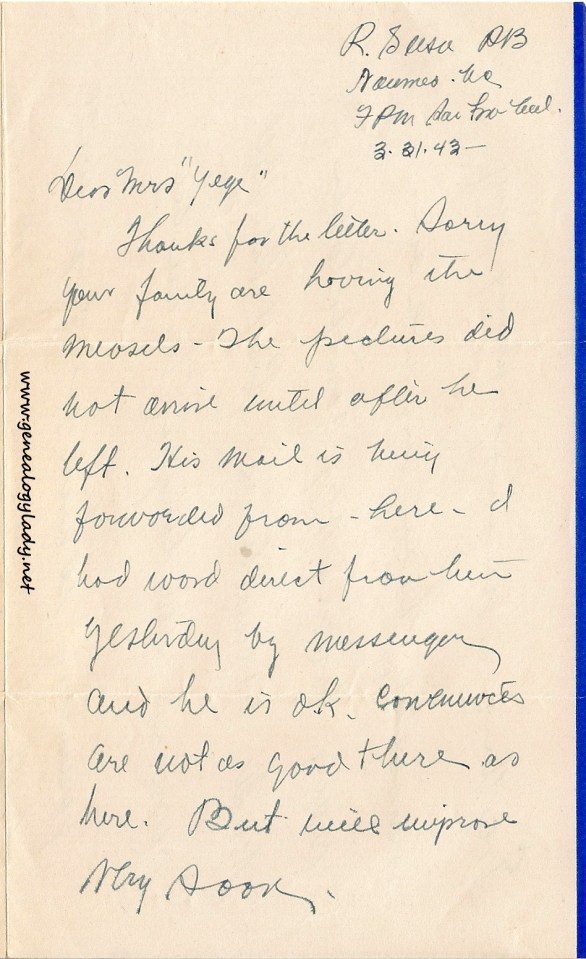 R.
Noumea.
San Cal.
3.31.43 -
Dear Mrs "Yege"
Thanks for the letter. Sorry
your family are having the
measels - The pictures did
not arrive until after he
left. His mail is being
forwarded from - here - I
had word direct from him
yesterday by messenger
and he is ok.
are not as good there as
here. But will improve
very soon.
www.genealogylady.net